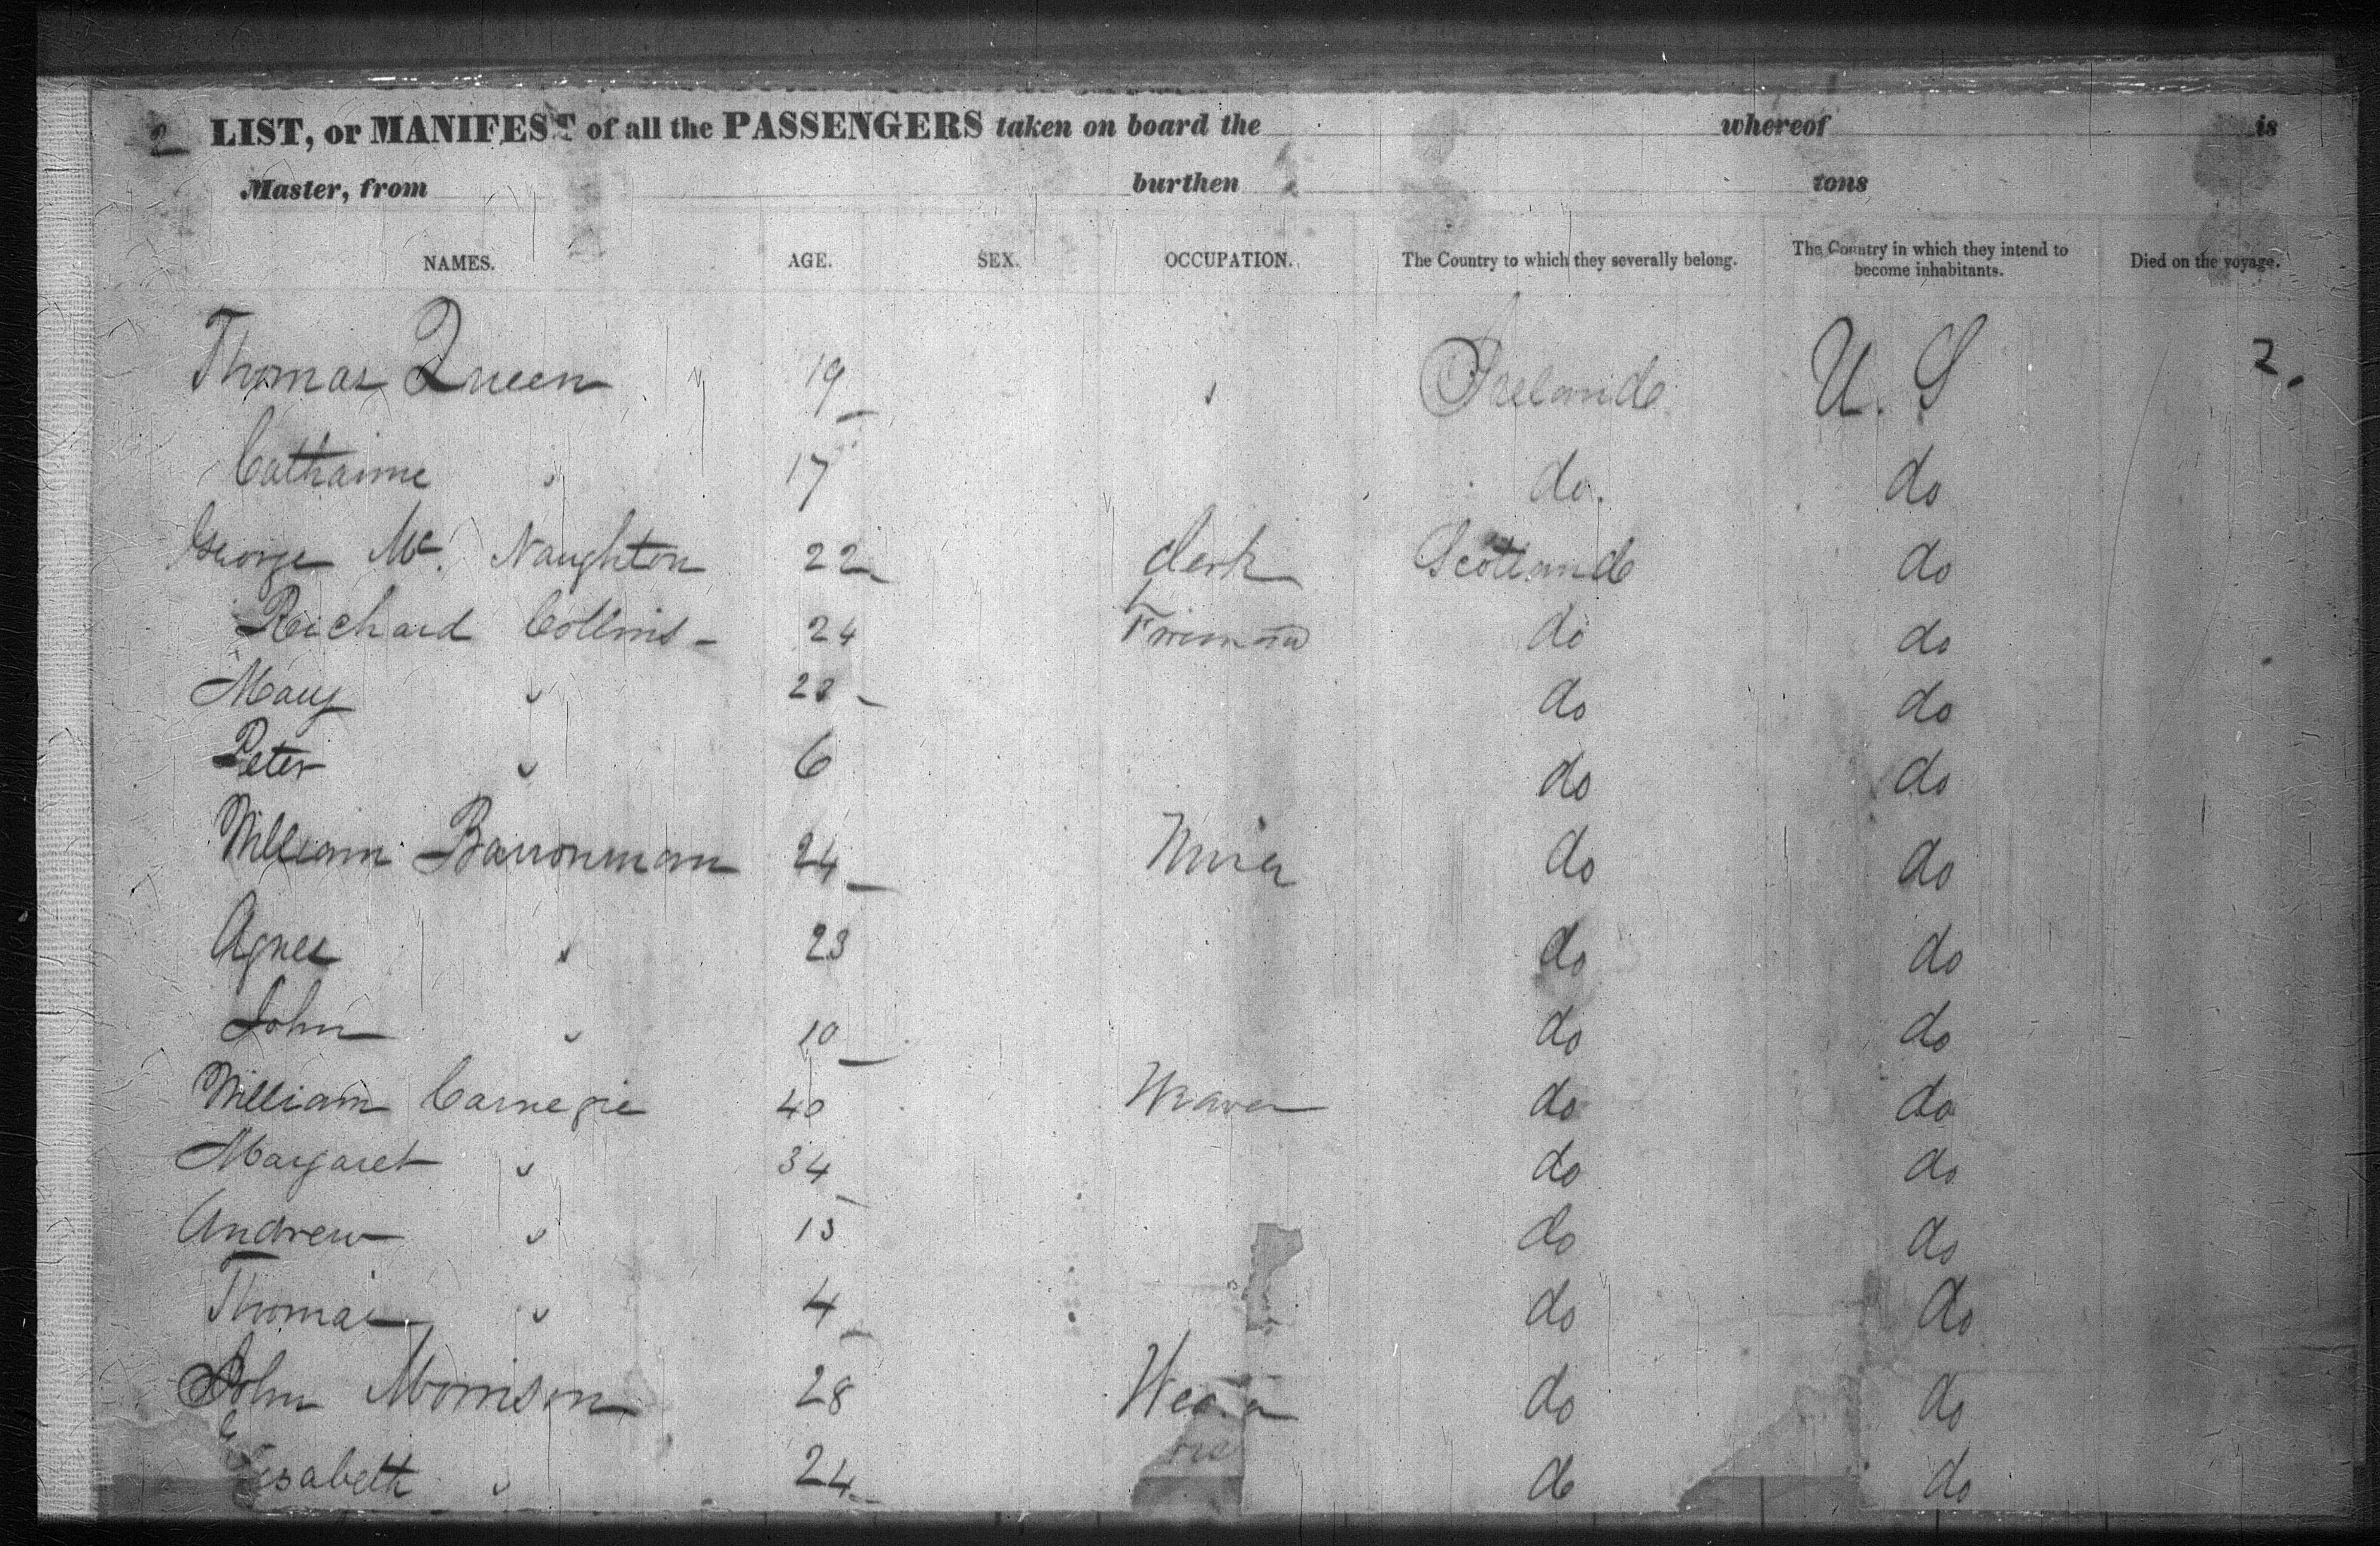 2 LIST, or MANIFEST of all the PASSENGERS taken on board the whereof is
Master, from burthen tons
NAMES. AGE. SEX. OCCUPATION. The Country to which they severally belong. The Country in which they intend to become inhabitants. Died on the voyage.
Thomas Queen 19 Ireland U. S 2.
Catharine " 17 do. do
George Mc. Naughton 22 Clerk Scotland do
Richard Collins 24 do do
Mary " do do
Peter " 6 do do
William Barronman 24 Miner do do
Agnes " 23 do do
John " 10 do do
William Carnegie 40 Weaver do do
Margaret " 34 do do
Andrew " 13 do do
Thomas " 4 do do
John Morrison 28 do do
" 24 do do